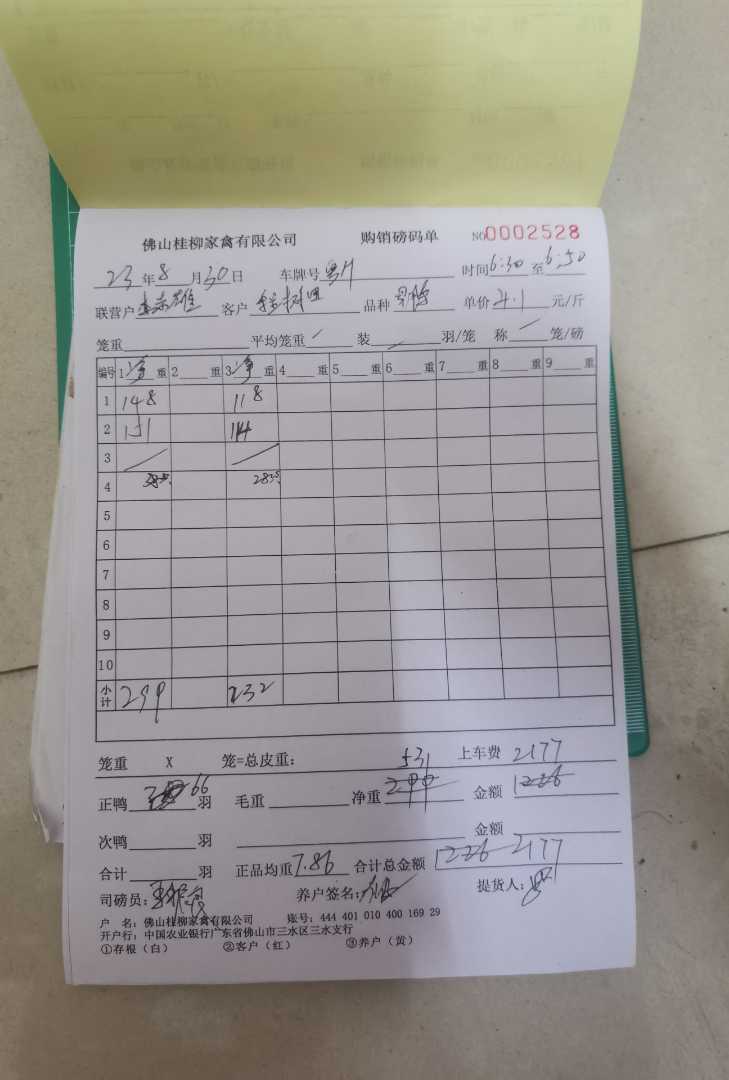 佛山桂柳家禽有限公司 购销磅码单 NO 0002528
23 年 8 月 30 日 车牌号 时间 6:30 至 6:50
联营户 客户 品种 单价 4.1 元/斤
笼重 平均笼重 / 装 / 羽/笼 称 / 笼/磅
编号 1 净 重 2 重 3 净 重 4 重 5 重 6 重 7 重 8 重 9 重
1 148 118
2 151 114
3 / /
4
5
6
7
8
9
10
小计 299 232
笼重 X 笼=总皮重: 531 上车费 2177
正鸭 66 羽 毛重 净重 299 金额 1226
次鸭 羽 金额
合计 羽 正品均重 7.86 合计总金额 1226 2177
司磅员: 养户签名: 提货人:
户 名: 佛山桂柳家禽有限公司 账号: 444 401 010 400 169 29
开户行: 中国农业银行广东省佛山市三水区三水支行
①存根(白) ②客户(红) ③养户(黄)